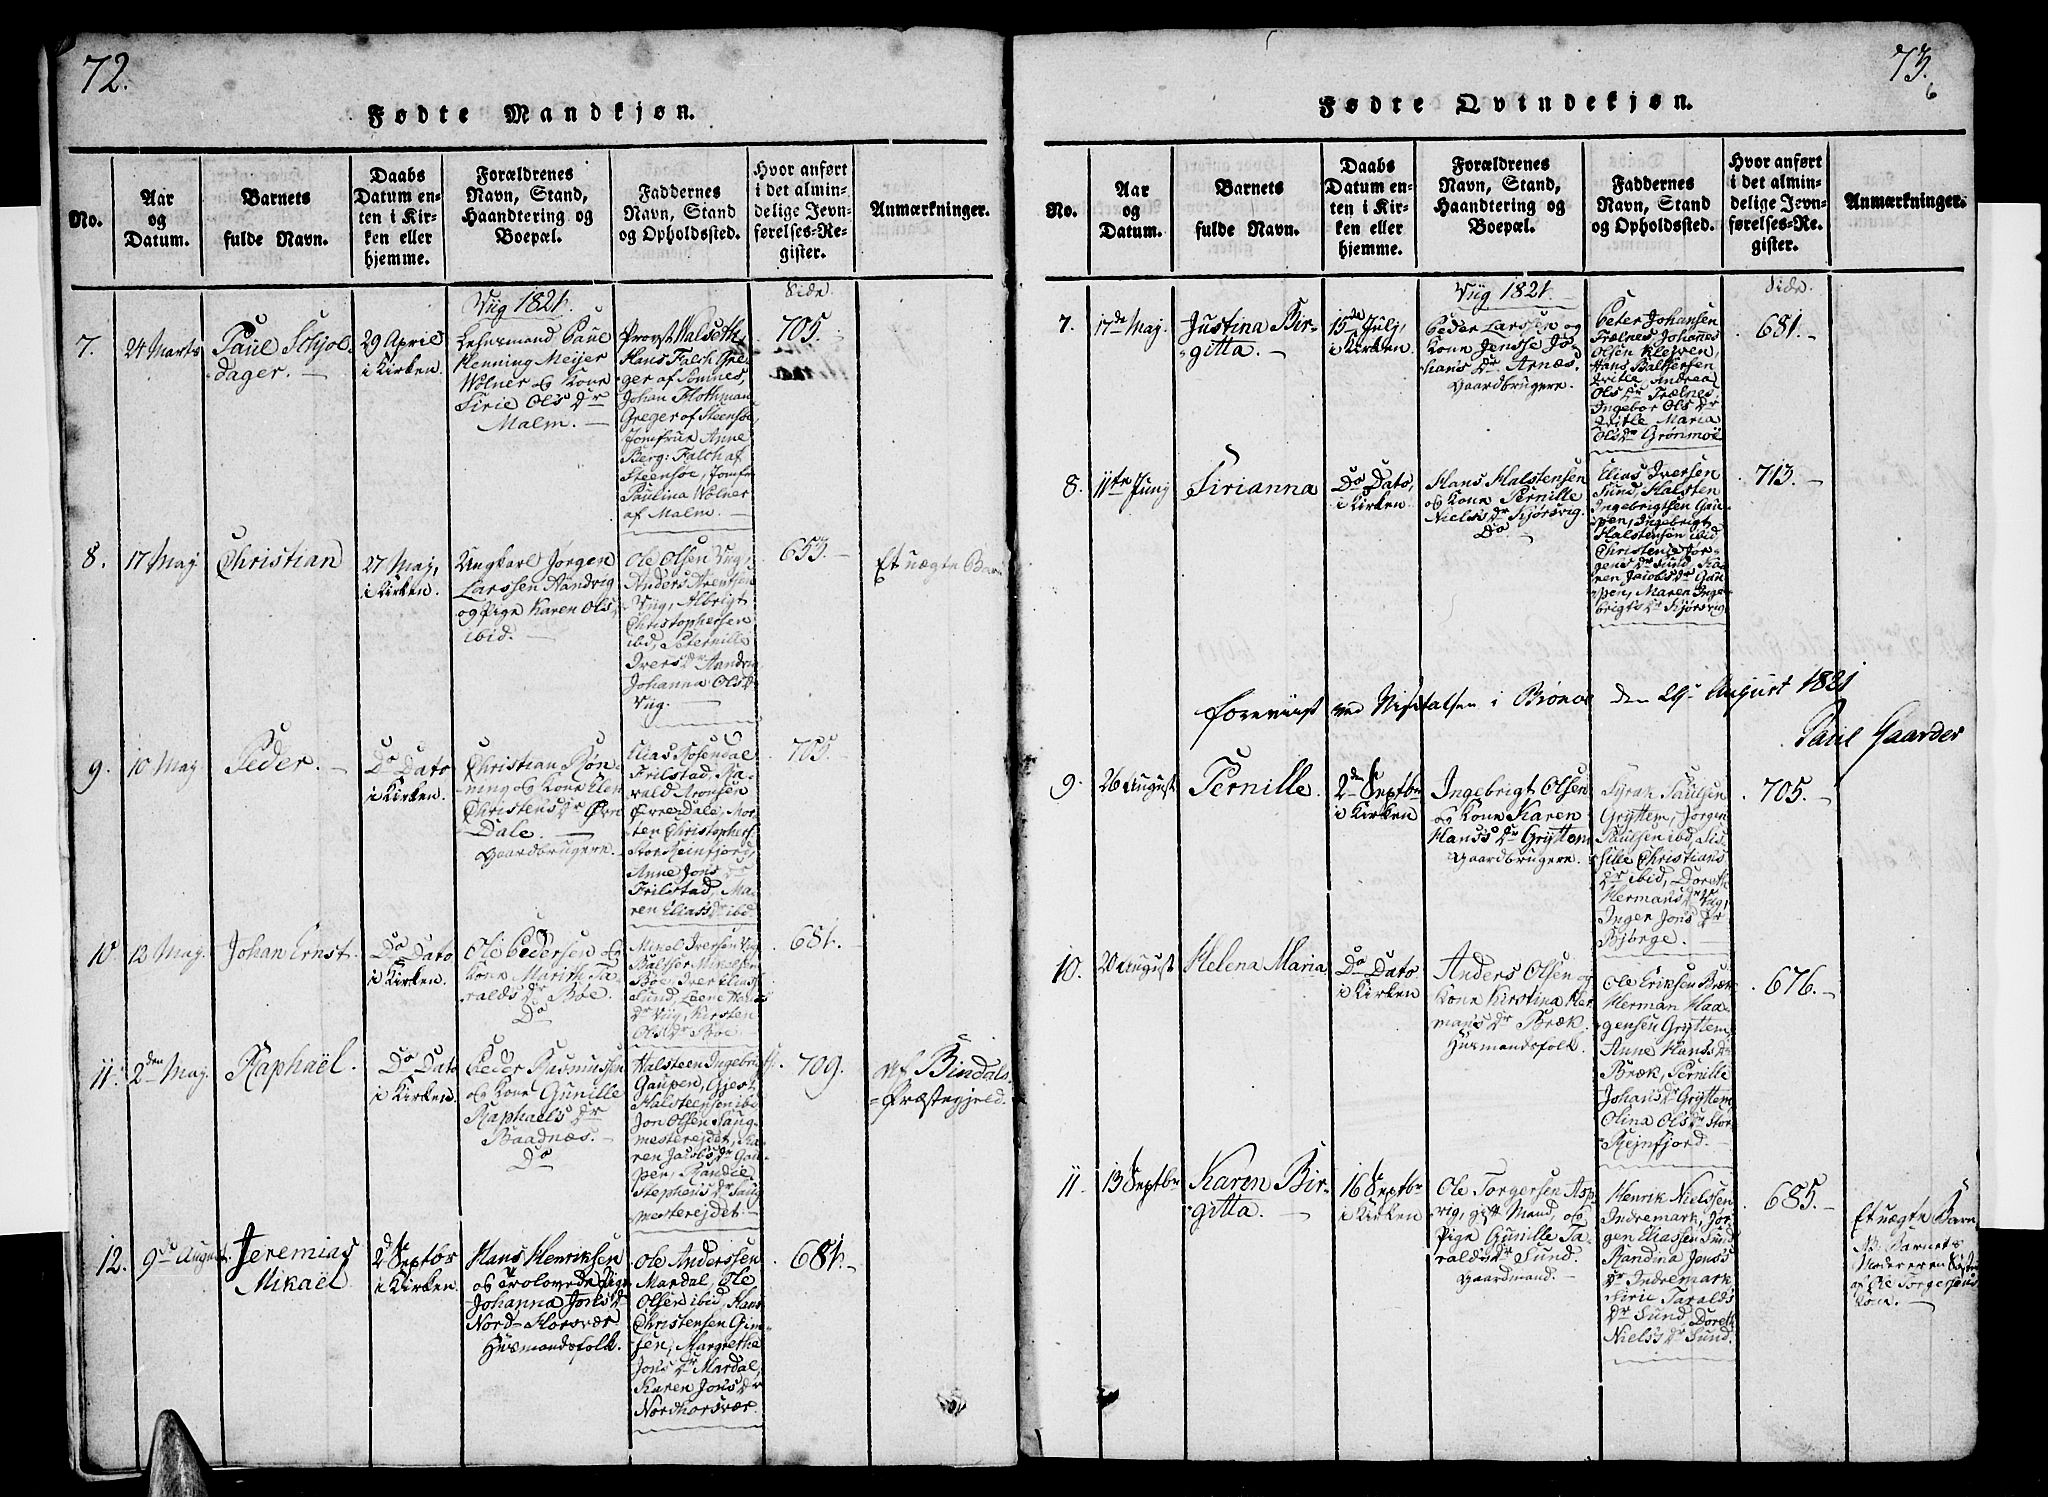 72.
Fødte Mandkjøn.
No.
Aar
og
Datum.
Barnets
fulde Navn.
Daabs
Datum en-
ten i Kir-
ken eller
hjemme.
Forældrenes
Navn, Stand,
Haandtering og
Boepæl.
Faddernes
Navn, Stand
og Opholdssted.
Hvor anført
i det almin-
delige Jevn-
førelses-Re-
gister.
Anmærkninger.
Viig 1821.
Side
7.
24 Marts
Paul Schjol-
dager.
29 April
i Kirken.
Lehnsmand Paul
Henning Meijer
Wolner og Kone
Sirie Ols Dr
Malm.
Provst Walseth,
Hans Falch Gre-
ger af Somnes,
Johan Flothman
Greger af Steensøe,
Jomfrue Anne
Berg: Falch af
Steensøe, Jomfr.
Paulina Wolner
af Malm.
705.
8.
17 Maj
Christian
27 Maj,
i Kirken.
Ungkarl Jørgen
Larssen Aandvig
og Pige Karen Ols Dr
ibid.
Ole Olsen Viig,
Anders Arentsen
Viig, Albrigt
Christophersen
ibd, Peternille
Ivers Dr Aandvig
Johanna Ols Dr
Viig.
653.
Et uægte Barn
9.
10 Maj
Peder.
Do Dato
i Kirken.
Christian Røn-
ning og Kone Elen
Christens Dr Øvre
Dale.
Gaardbrugere.
Elias Rosendal
Frilstad, Ha-
rald Aronsen
Øvre Dale, Mor-
ten Christophers.
Stor Reinfjord,
Anne Jons Dr
Frilstad, Ma-
ren Elias Dr ibd.
705.
10
12 Maj.
Johan Ernst.
Do Dato
i Kirken.
Ole Pedersen og
Kone Marith Ta-
ralds Dr Bøe.
Do
Mikel Iversen Viig
Baltser Mikelsen
Bøe, Iver Elias
Sund, Lene Hans
Dr Viig, Kirsten
Ols Dr Bøe
681.
11.
2den Maj.
Raphaël.
Do Dato
i Kirken.
Peder Rasmussen
og Kone Gunille
Raphaels Dr
Baadnæs.
Do
Halsteen Ingebrigts.
Gaupen, Gjest
Halsteensen ibd
Jon Olsen Saug-
mesterejdet, Ka-
ren Jacobs Dr Gau-
pen, Randie
Stephens Dr Saug
mesterejdet.
709.
Af Bindals-
Præstegjeld.
12.
9de August
Jeremias
Mikaël
2de Septbr
i Kirken.
Hans Henriksen
og trolovede Pige
Johanna Jons Dr
Nord-Horsvær
Huusmandsfolk.
Ole Anderssen
Mardal, Ole
Olsen ibid, Hans
Christensen Gim-
sen, Margrethe
Jons Dr Mardal,
Karen Jons Dr
Nordhorsvær.
681.
73.
6
Fødte Qvindekjøn.
No.
Aar
og
Datum.
Barnets
fulde Navn.
Daabs
Datum en-
ten i Kir-
ken eller
hjemme.
Forældrenes
Navn, Stand,
Haandtering og
Boepæl.
Faddernes
Navn, Stand
og Opholdssted.
Hvor anført
i det almin-
delige Jevn-
førelses-Re-
gister.
Anmærkninger.
Viig 1821.
Side.
7.
17de Maj.
Justina Bir-
gitta.
15de Julj,
i Kirken.
Peder Larsen og
Kone Jensse Jo-
hans Dr Arnæs.
Gaardbrugere.
Peter Johansen
Trælnes, Johannes
Olsen Klejven,
Hans Baltsersen
Qvitle, Andrea
Ols Dr Trælnes,
Ingebor Ols Dr
Qvitle, Maria
Ols Dr Grønmoe
681.
8.
11te Junj
Sirianna
Do Dato,
i Kirken.
Hans Halstensen
og Kone Pernille
Niels Dr Kjørsvig.
Do
Elias Iversen
Sund, Halsten
Ingebrigtsen Gau-
pen, Ingebrigt
Halstensen ibid
Christenie Jør-
gens Dr Sund, Ka-
ren Jacobs Dr Gau-
pen, Maren Inge-
brigts Dr Kjørsvig
713.
foreviist ved Visitatsen i Brønøe den 29. August 1821
Paul Gaarder
9.
26 August
Pernille.
2den Septbr
i Kirken
Ingebrigt Olsen
og Kone Karen
Hans Dr Gryttem
Gaardbrugere.
Syrak Paulsen
Gryttem, Jørgen
Paulsen ibd, Sis-
sille Christians
Dr ibid, Doreth
Hermans Dr Viig,
Inger Jons Dr
Bjørge.
705.
10.
20 August
Helena Maria
Do Dato
i Kirken
Anders Olsen og
Kone Kirstina Her-
mans Dr Bræk.
Huusmandsfolk.
Ole Eriksen Bræk
Herman Haa-
gensen Gryttem
Anne Hans Dr
Bræk, Pernille
Johans Dr Gryttem
Olina Ols Dr Stor
Rejnfjord.
676.
11.
13 Septbr
Karen Bir-
gitta.
16 Septbr
i Kirken
Ole Torgersen Asp-
vig, gift Mand, og
Pige Gunille Ta-
ralds Dr Sund.
Gaardmand.
Henrik Nielssen
Indremark, Jør-
gen Eliassen Sund
Randina Jens's
Dr Indremark
Sirie Taralds
Dr Sund, Doreth
Niels Dr Sund.
685.
Et uægte Barn
NB. Barnets
Moder er en Søster
af Ole Torgersens
Kone.